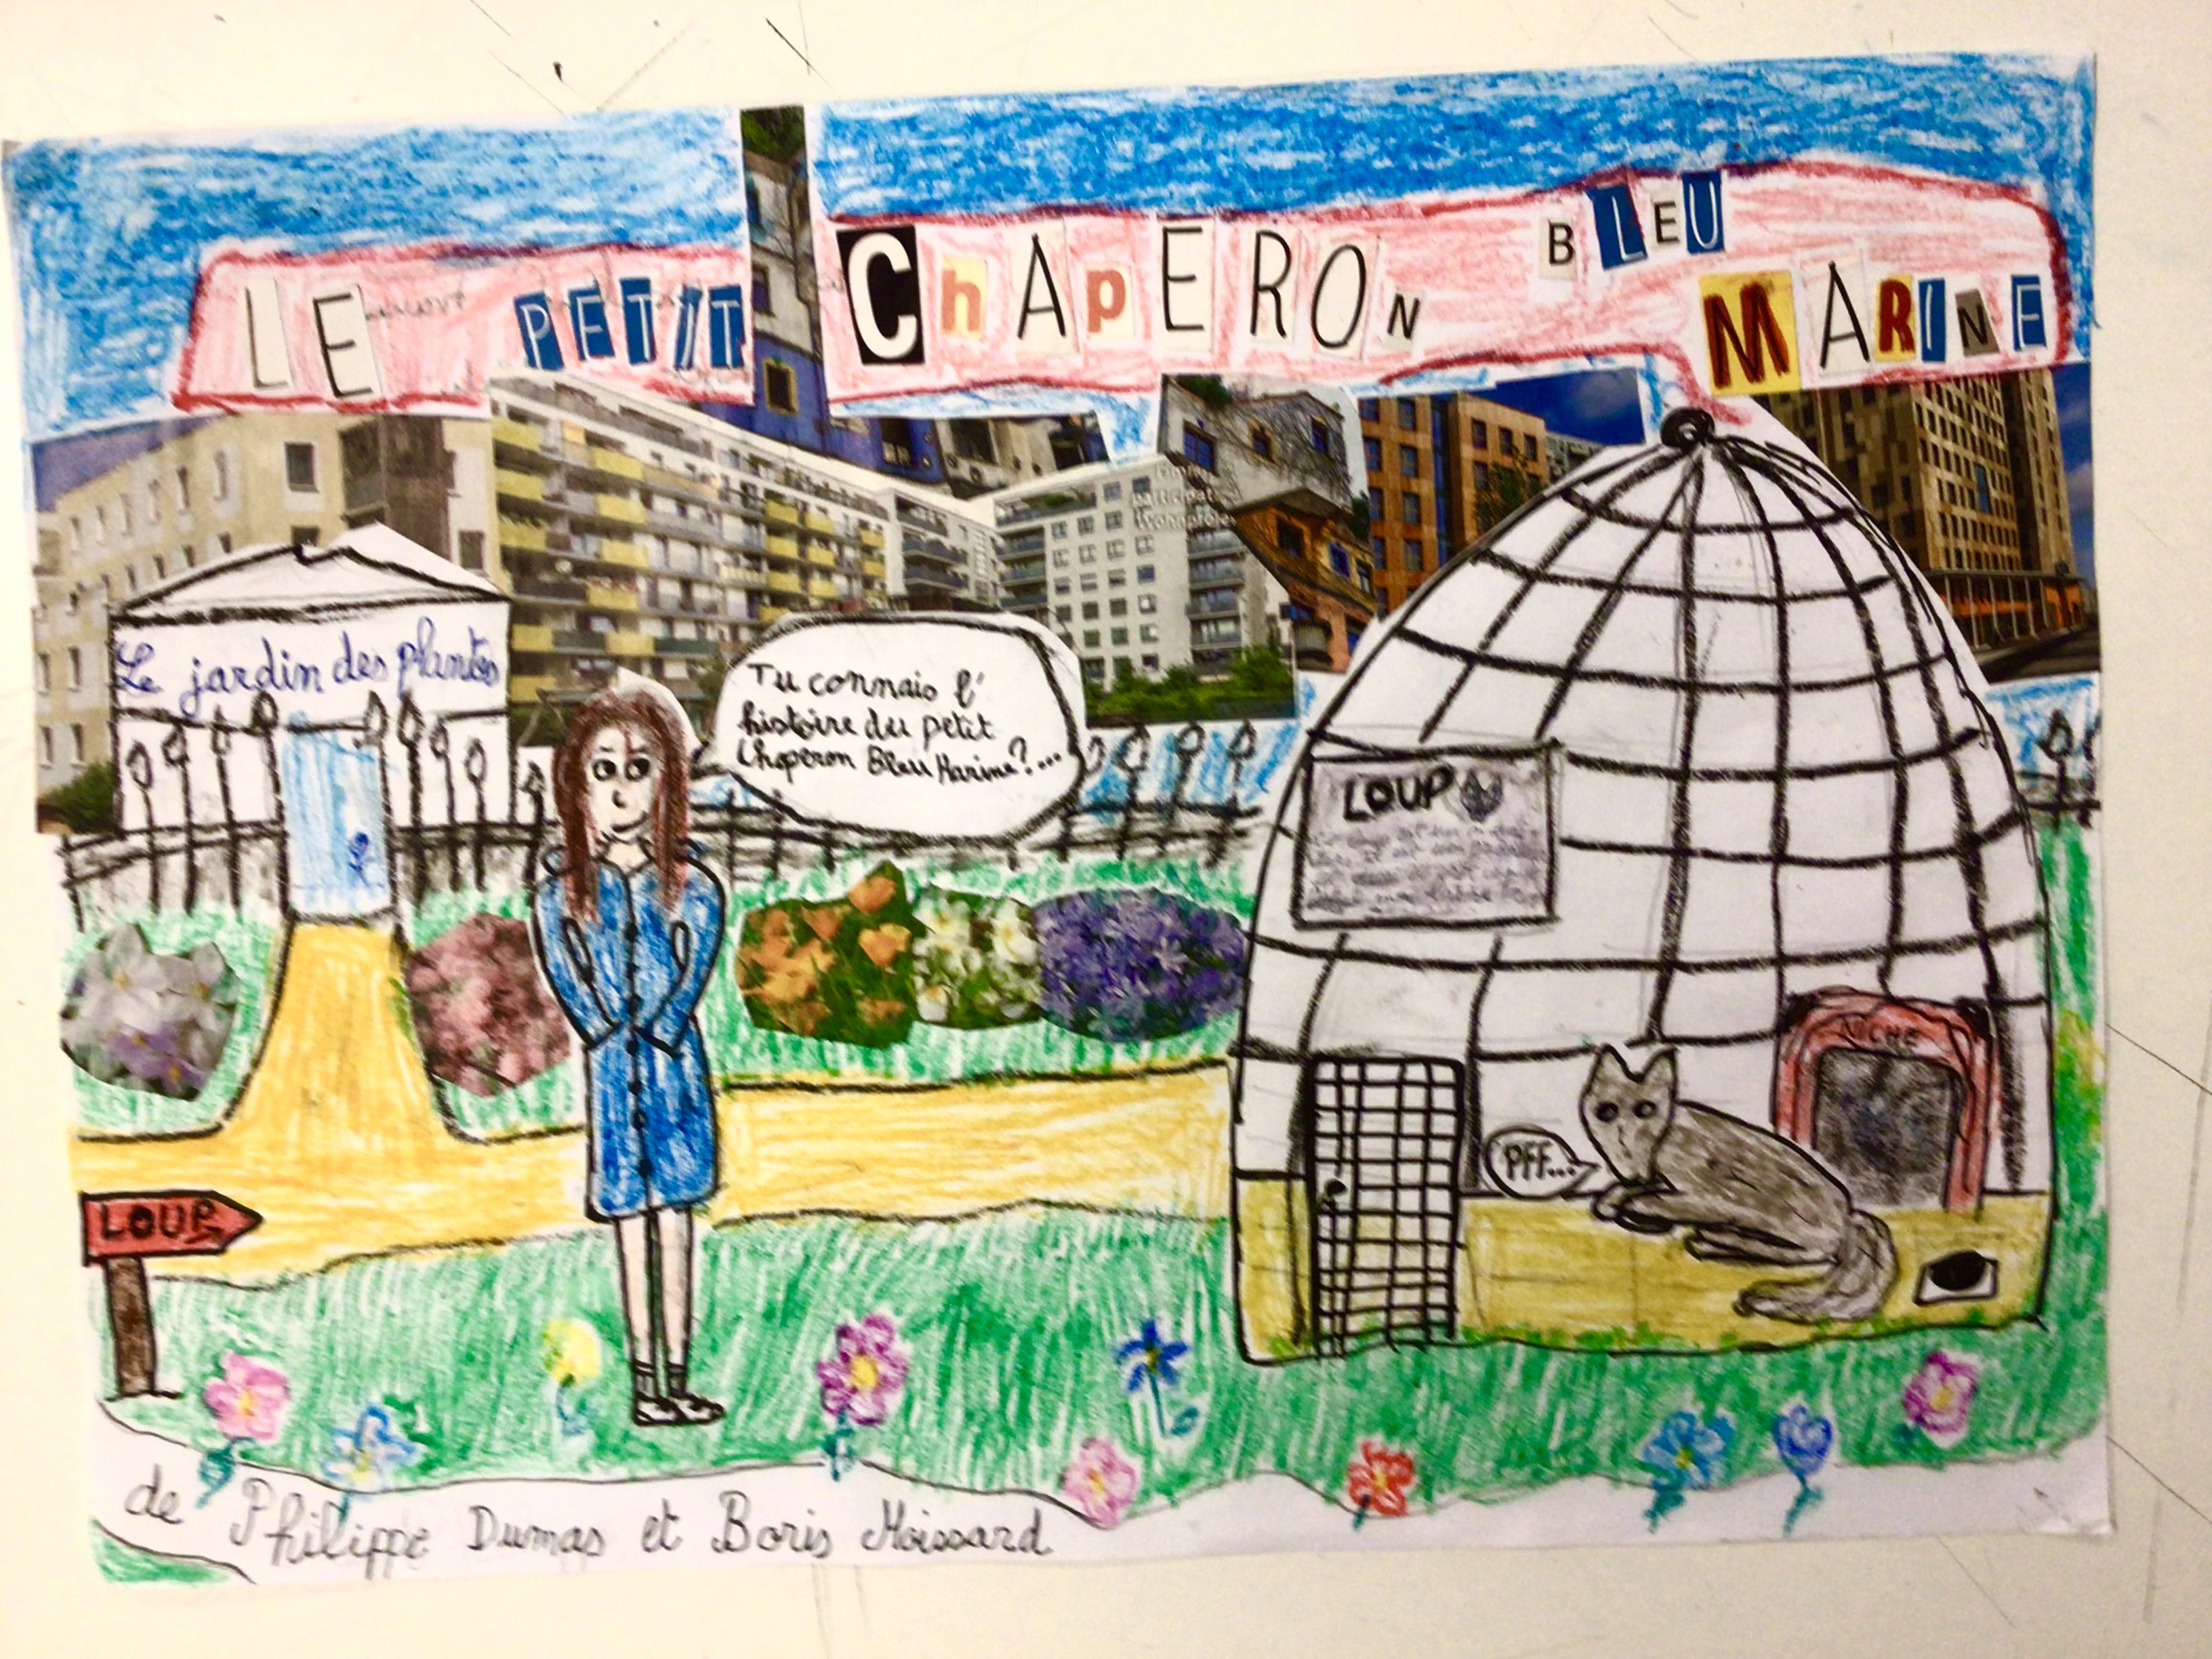 LE PETIT ChApERON BLEU
MARINE
Le jardin des plantes
Tu connais l'
histoire du petit
Chaperon Bleu Marine?...
LOUP
NICHE
PFF...
LOUP
de Philippe Dumas et Boris Moissard